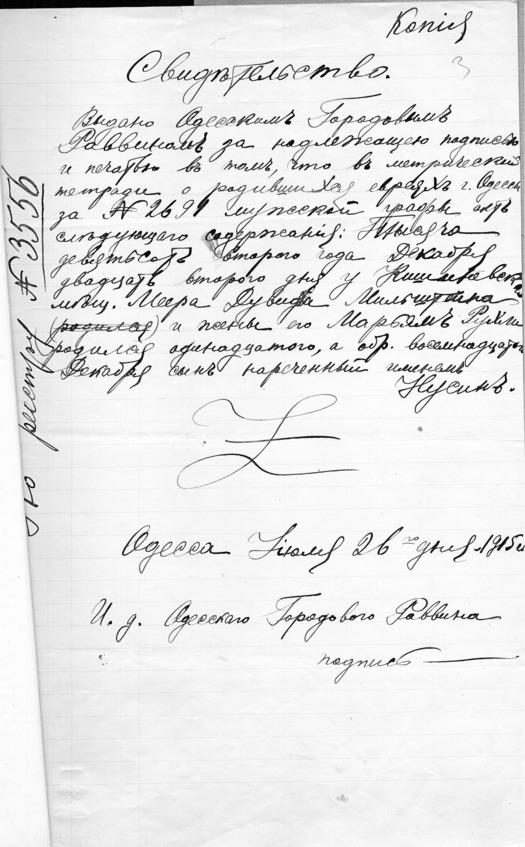 Копія
Свидѣтельство.
Выдано Одесскимъ Городовымъ
Раввиномъ за надлежащею подписью
и печатью въ томъ, что въ метрической
тетради о родившихся евреяхъ г. Одессы
за № 2691 мужской графы актъ
слѣдующаго содержанія: Тысяча
девятьсотъ второго года Декабря
двадцать второго дня у Кишиневск
мѣщ. Меера Дувида Мильштейна
(родился) и жены его Марьямъ Рухли
родился одинадцатого, а обр. восемнадцатого
Декабря сынъ нареченный именемъ
Нусинъ.
Одесса Іюля 26 го дня 1915
И. д. Одесскаго Городового Раввина
подпись
По реестру № 3556